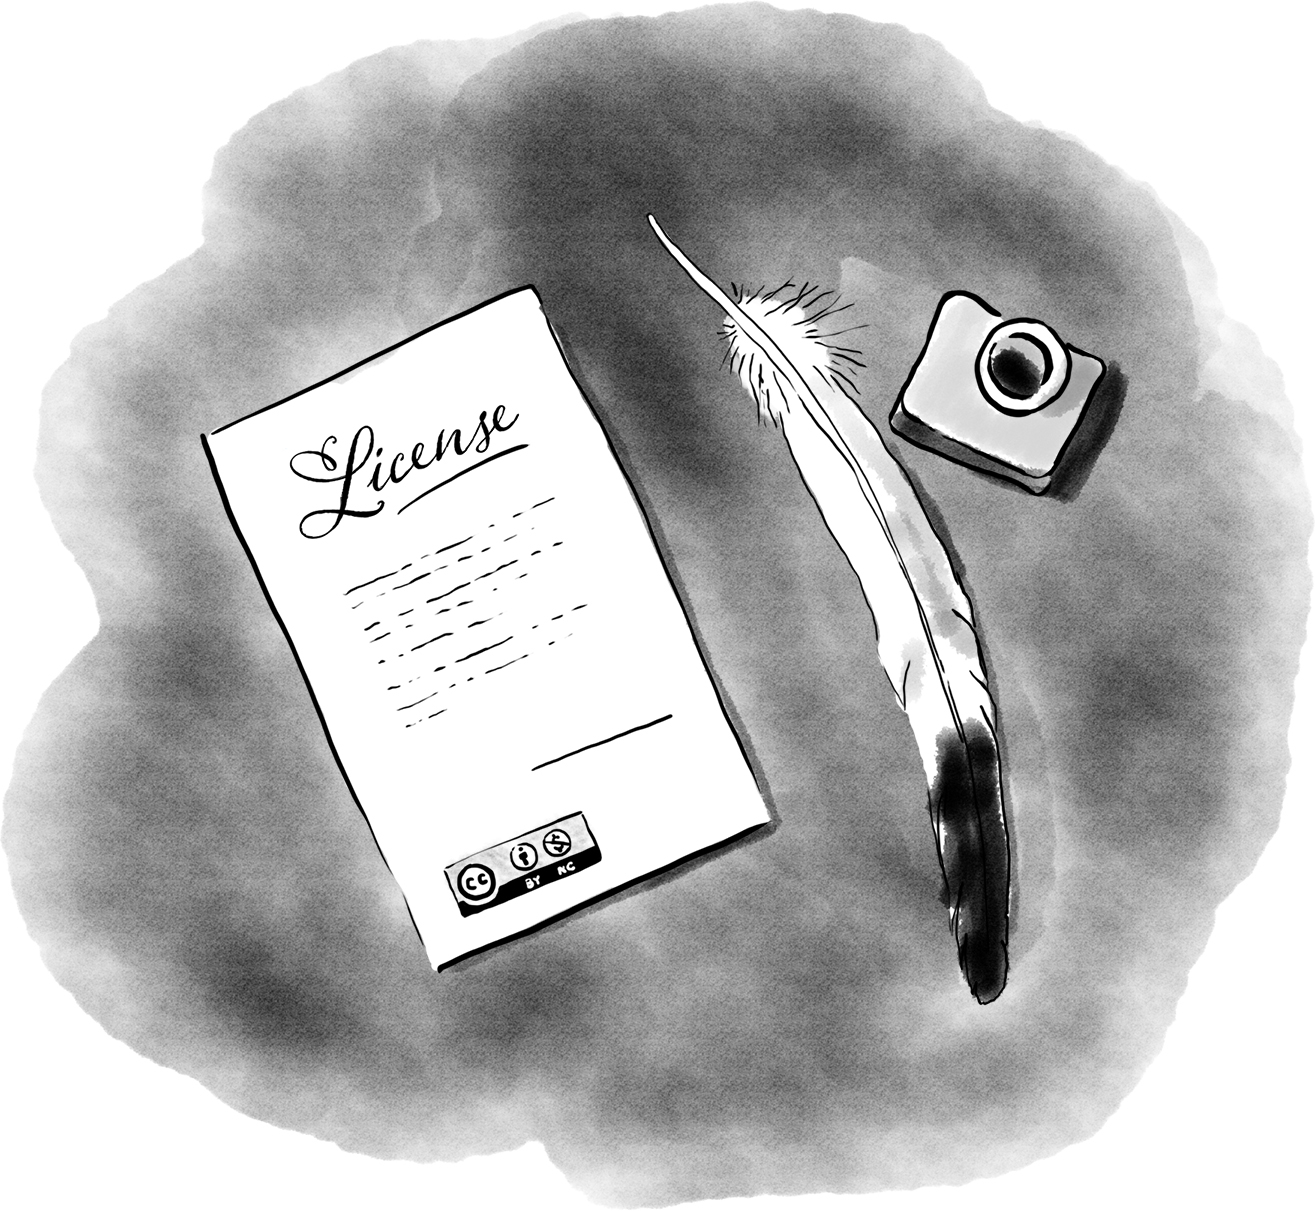 License
cc
BY NC